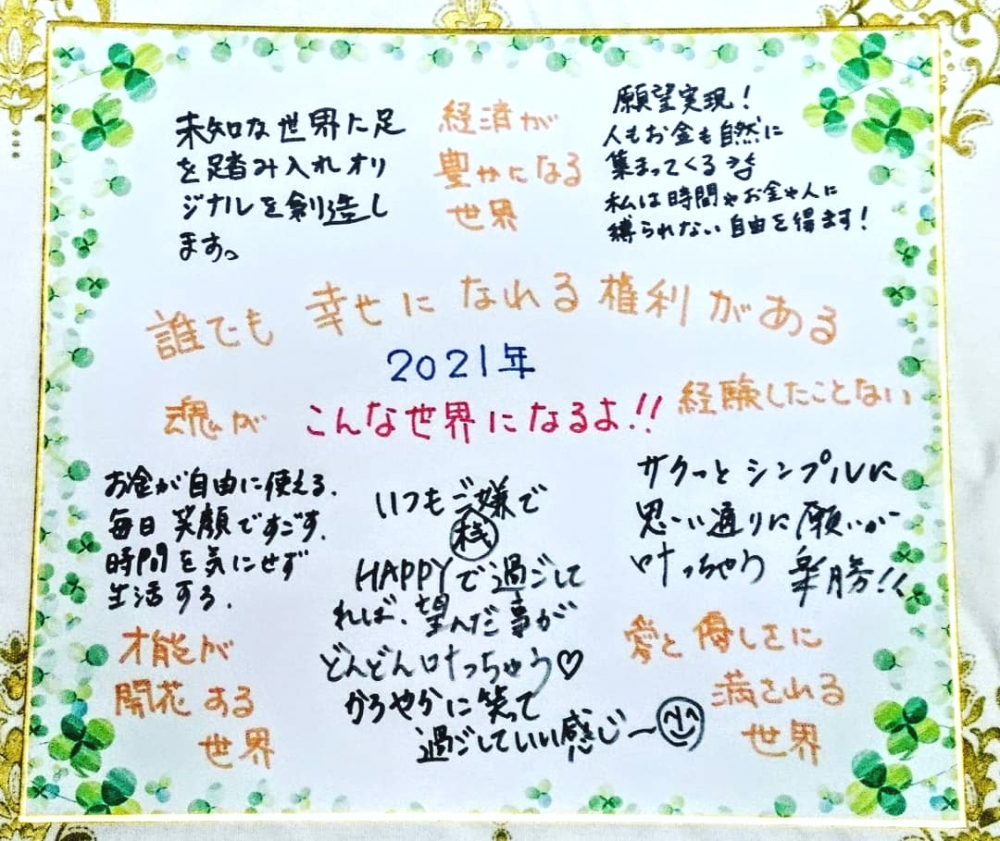 未知な世界に足
を踏み入れオリ
ジナルを創造し
ます。
経済が
豊かになる
世界
願望実現!
人もお金も自然に
集まってくる
私は時間やお金や人に
縛られない自由を得ます!
誰でも 幸せになれる権利がある
2021年
魂が こんな世界になるよ!! 経験したことない
お金が自由に使える.
毎日笑顔ですごす.
時間を気にせず
生活する.
いつもご嫌で
機
HAPPYで過ごして
れば、望んだ事が
どんどん叶っちゃう♡
かろやかに笑って
過ごしていい感じ〜
サクっとシンプルに
思い通りに願いが
叶っちゃう 楽勝!!
才能が
開花する
世界
愛と優しさに
満される
世界